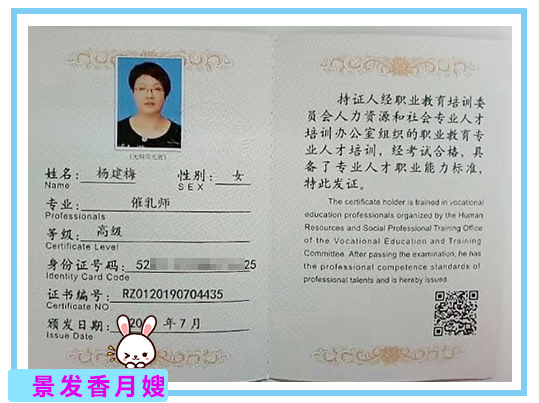 (无钢印无效)
姓名: 杨建梅 性别: 女
Name SEX
专业: 催乳师
Professionals
等级: 高级
Certificate Level
身份证号码: 52 25
Identity Card Code
证书编号: RZ0120190704435
Certificate NO
颁发日期: 20 年7月
Issue Date
持证人经职业教育培训委
员会人力资源和社会专业人才
培训办公室组织的职业教育专
业人才培训，经考试合格，具
备了专业人才职业能力标准，
特此发证。
The certificate holder is trained in vocational
education professionals organized by the Human
Resources and Social Professional Training Office
of the Vocational Education and Training
Committee. After passing the examination, he has
the professional competence standards of
professional talents and is hereby issued.
景发香月嫂